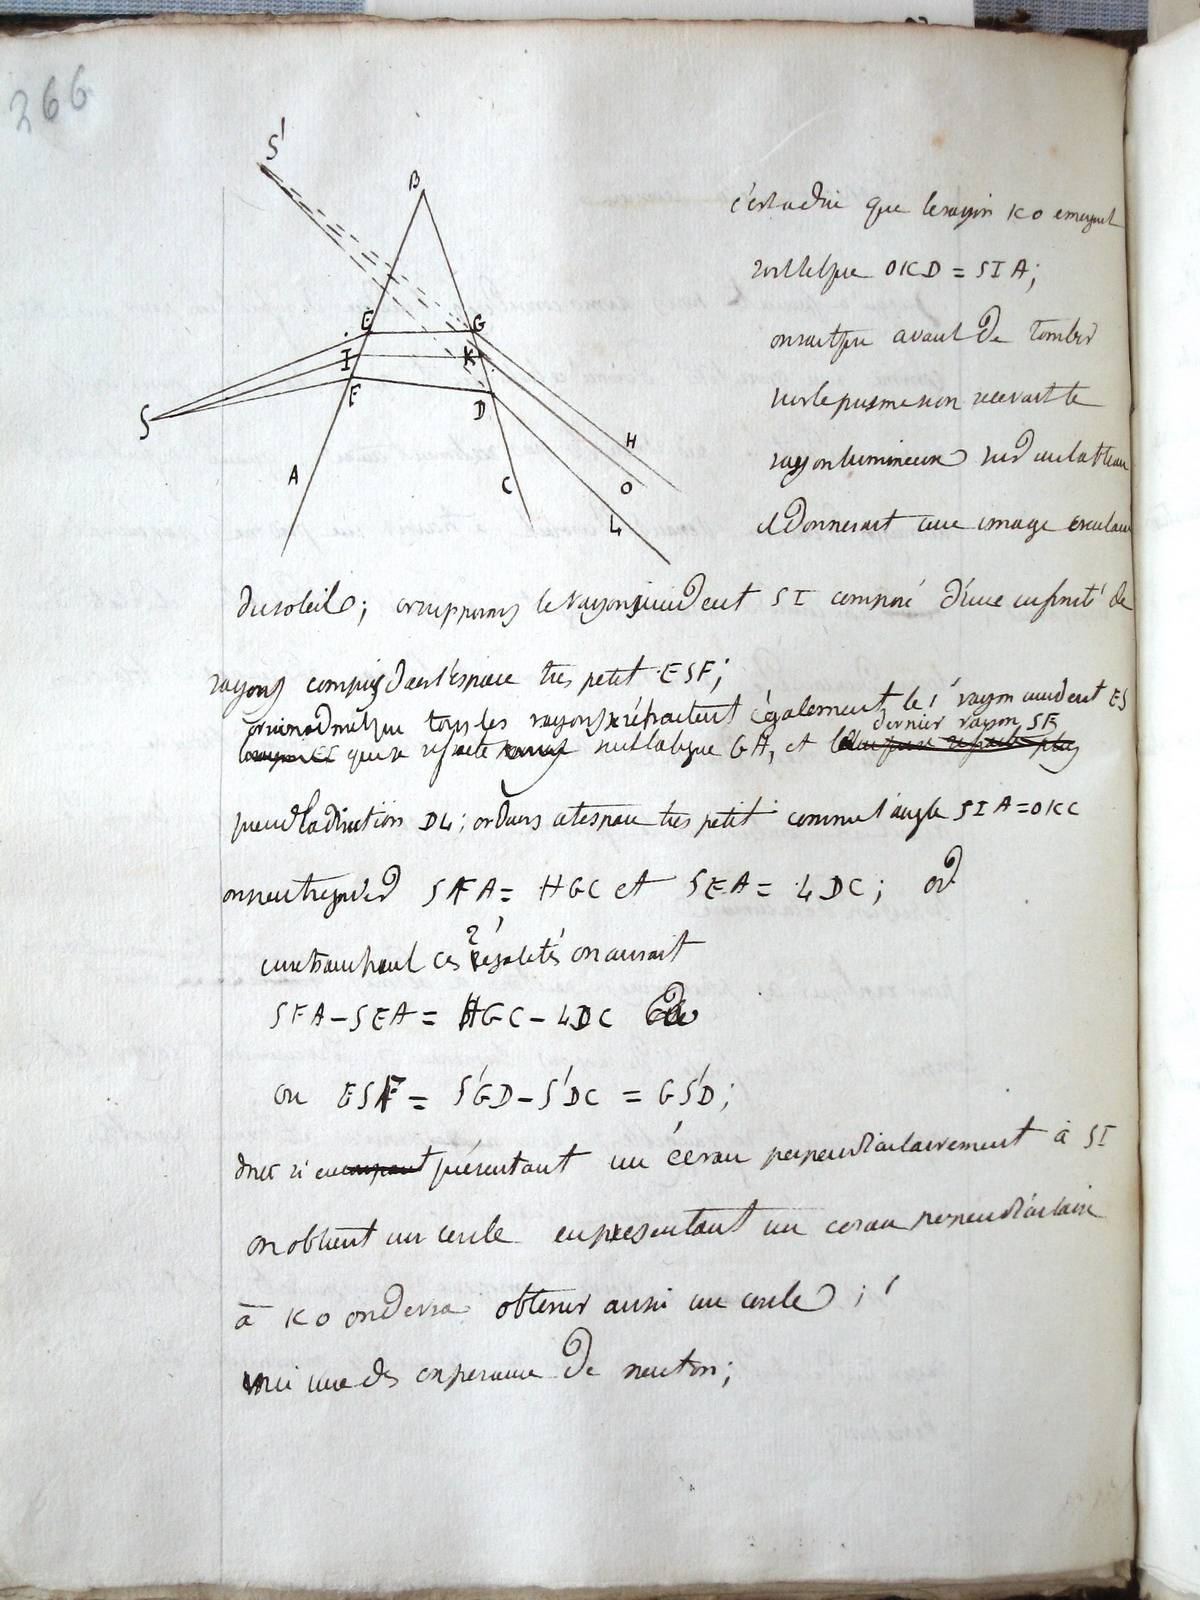 266
S'
B
E
G
I
K
F
D
S
H
A
C
O
L
c'est a dire que le rayon KO emergent
soit tel que OKD = SIA;
on sait que avant de tomber
sur le prisme si on recevait le
rayon lumineux sur un tableau
il donnerait une image circulaire
du soleil; or supposons le rayon incident SI composé d'une infinité de
rayons compris dans l'espace très petit ESF;
or si on admet que tous les rayons se réfractent également le 1er rayon incident ES
dernier rayon SF
qui se refracte suit la ligne GH, et le
prend la direction DL; or dans cet espace très petit comme l'angle SIA = OKC
on peut regarder SFA = HGC et SEA = LDC; or
en retranchant ces 2 égalités on aurait
SFA - SEA = HGC - LDC
ou ESF = S'GD - S'DC = GS'D;
donc si en présentant un écran perpendiculairement à SI
on obtient un cercle en presentant un ecran perpendiculaire
à KO on devra obtenir aussi un cercle;
voici une des experience de neuton;